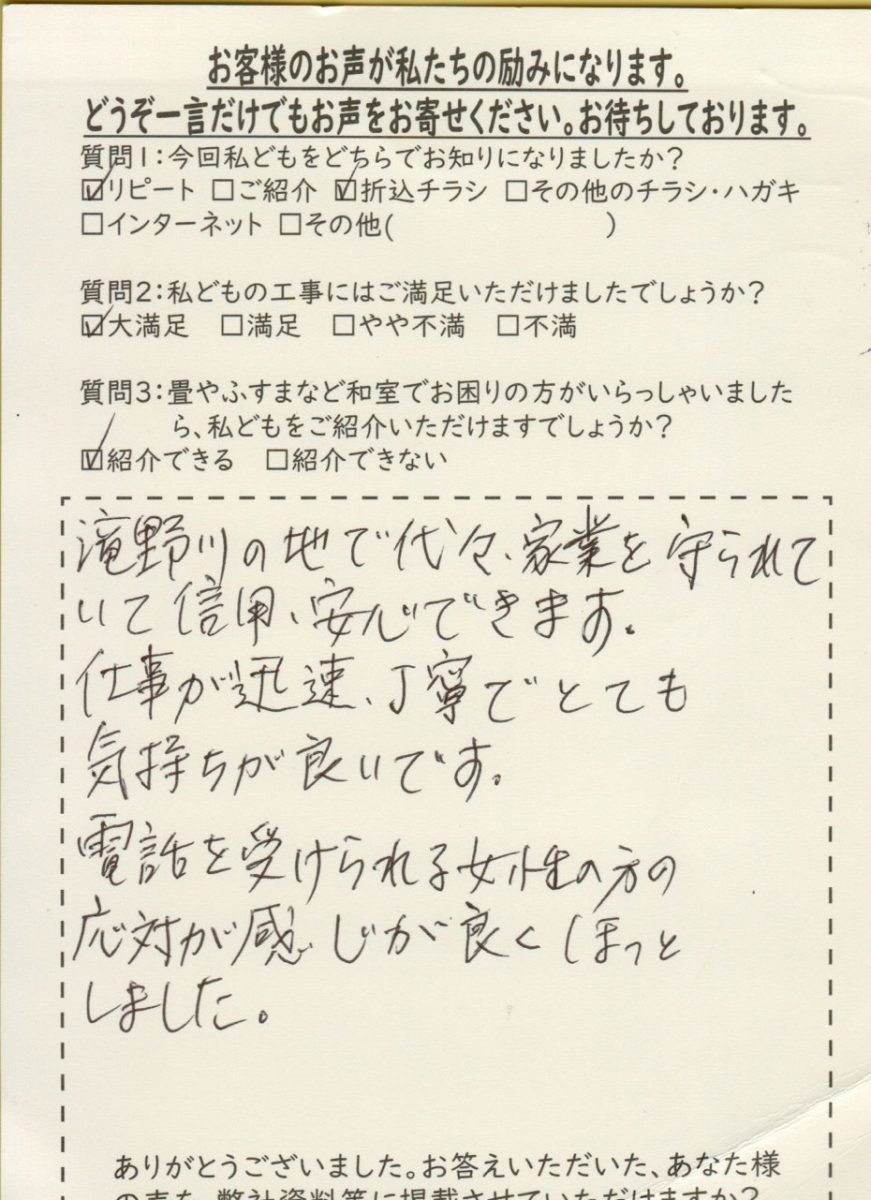 お客様のお声が私たちの励みになります。
どうぞ一言だけでもお声をお寄せください。お待ちしております。
質問1:今回私どもをどちらでお知りになりましたか?
☑リピート □ご紹介 ☑折込チラシ □その他のチラシ・ハガキ
□インターネット □その他( )
質問2:私どもの工事にはご満足いただけましたでしょうか?
☑大満足 □満足 □やや不満 □不満
質問3:畳やふすまなど和室でお困りの方がいらっしゃいました
ら、私どもをご紹介いただけますでしょうか?
☑紹介できる □紹介できない
滝野川の地で代々、家業を守られて
いて信用、安心できます。
仕事が迅速、丁寧でとても
気持ちが良いです。
電話を受けられる女性の方の
応対が感じが良くほっと
しました。
ありがとうございました。お答えいただいた、あなた様
の声を、弊社資料等に掲載させていただけますか?